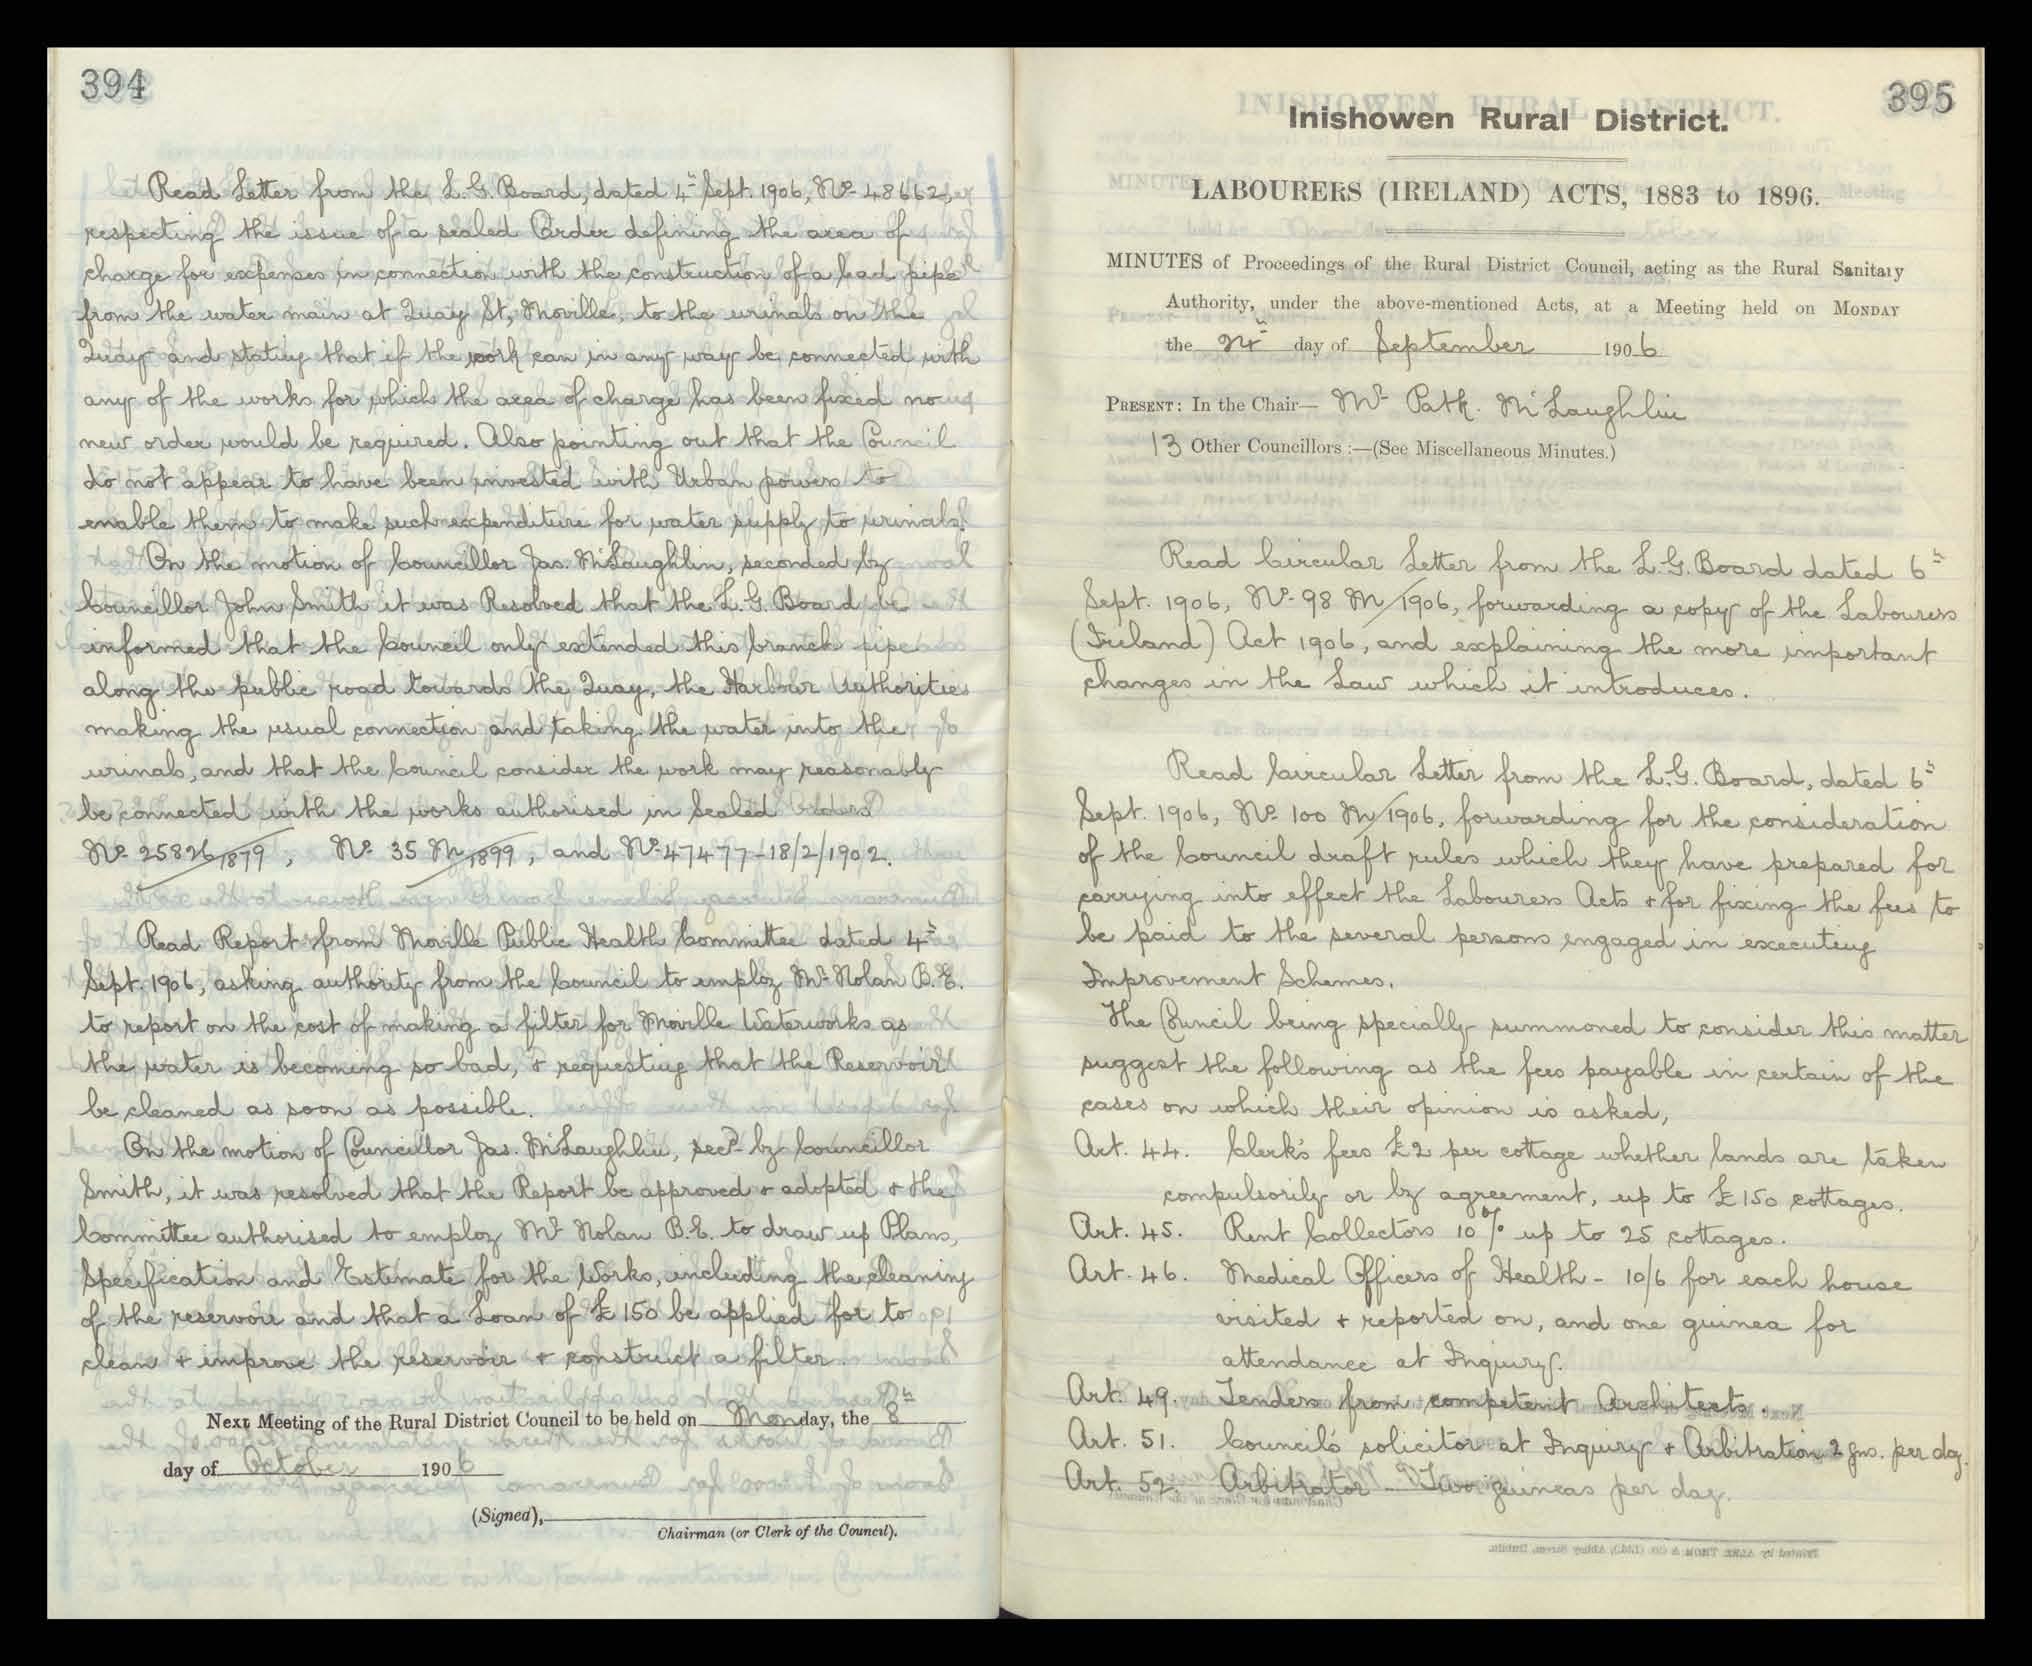 394
Read Letter from the L.G. Board, dated 4th Sept. 1906, No. 48662,
respecting the issue of a sealed Order defining the area of
charge for expenses in connection with the construction of a lead pipe
from the water main at Quay St, Moville, to the urinals on the
Quay and stating that if the work can in any way be connected with
any of the works for which the area of charge has been fixed no
new order would be required. Also pointing out that the Council
do not appear to have been invested with Urban powers to
enable them to make such expenditure for water supply to urinals.
On the motion of Councillor Jas. McLaughlin, seconded by
Councillor John Smith it was Resolved that the L.G. Board be
informed that the Council only extended this branch pipe
along the public road towards the Quay, the Harbour Authorities
making the usual connection and taking the water into the
urinals, and that the Council consider the work may reasonably
be connected with the works authorised in Sealed Orders
No. 25826/1879, No. 35 M/1899, and No. 47477-18/2/1902.
Read Report from Moville Public Health Committee dated 4th
Sept. 1906, asking authority from the Council to employ Mr. Nolan B.E.
to report on the cost of making a filter for Moville Waterworks as
the water is becoming so bad, & requesting that the Reservoir
be cleaned as soon as possible.
On the motion of Councillor Jas. McLaughlin, secd. by Councillor
Smith, it was resolved that the Report be approved & adopted & the
Committee authorised to employ Mr. Nolan B.E. to draw up Plans,
Specification and Estimate for the Works, including the cleaning
of the reservoir and that a Loan of £150 be applied for to
clean & improve the reservoir & construct a filter.
Next Meeting of the Rural District Council to be held on Monday, the 8th
day of October 1906
(Signed),
Chairman (or Clerk of the Council).
395
Inishowen Rural District.
LABOURERS (IRELAND) ACTS, 1883 to 1896.
MINUTES of Proceedings of the Rural District Council, acting as the Rural Sanitary
Authority, under the above-mentioned Acts, at a Meeting held on MONDAY
the 24th day of September 1906
PRESENT: In the Chair— Mr Patk. McLaughlin
13 Other Councillors :—(See Miscellaneous Minutes.)
Read Circular Letter from the L.G. Board dated 6th
Sept. 1906, No. 98 M/1906, forwarding a copy of the Labourers
(Ireland) Act 1906, and explaining the more important
changes in the Law which it introduces.
Read Circular Letter from the L.G. Board, dated 6th
Sept. 1906, No. 100 M/1906, forwarding for the consideration
of the Council draft rules which they have prepared for
carrying into effect the Labourers Acts & for fixing the fees to
be paid to the several persons engaged in executing
Improvement Schemes.
The Council being specially summoned to consider this matter
suggest the following as the fees payable in certain of the
cases on which their opinion is asked,
Art. 44. Clerk's fees £2 per cottage whether lands are taken
compulsorily or by agreement, up to £150 cottages.
Art. 45. Rent Collectors 10% up to 25 cottages.
Art. 46. Medical Officers of Health - 10/6 for each house
visited & reported on, and one guinea for
attendance at Inquiry.
Art. 49. Tenders from competent Architects.
Art. 51. Council's solicitor at Inquiry & Arbitration 2 gns. per day.
Art. 52. Arbitrator - Two guineas per day.